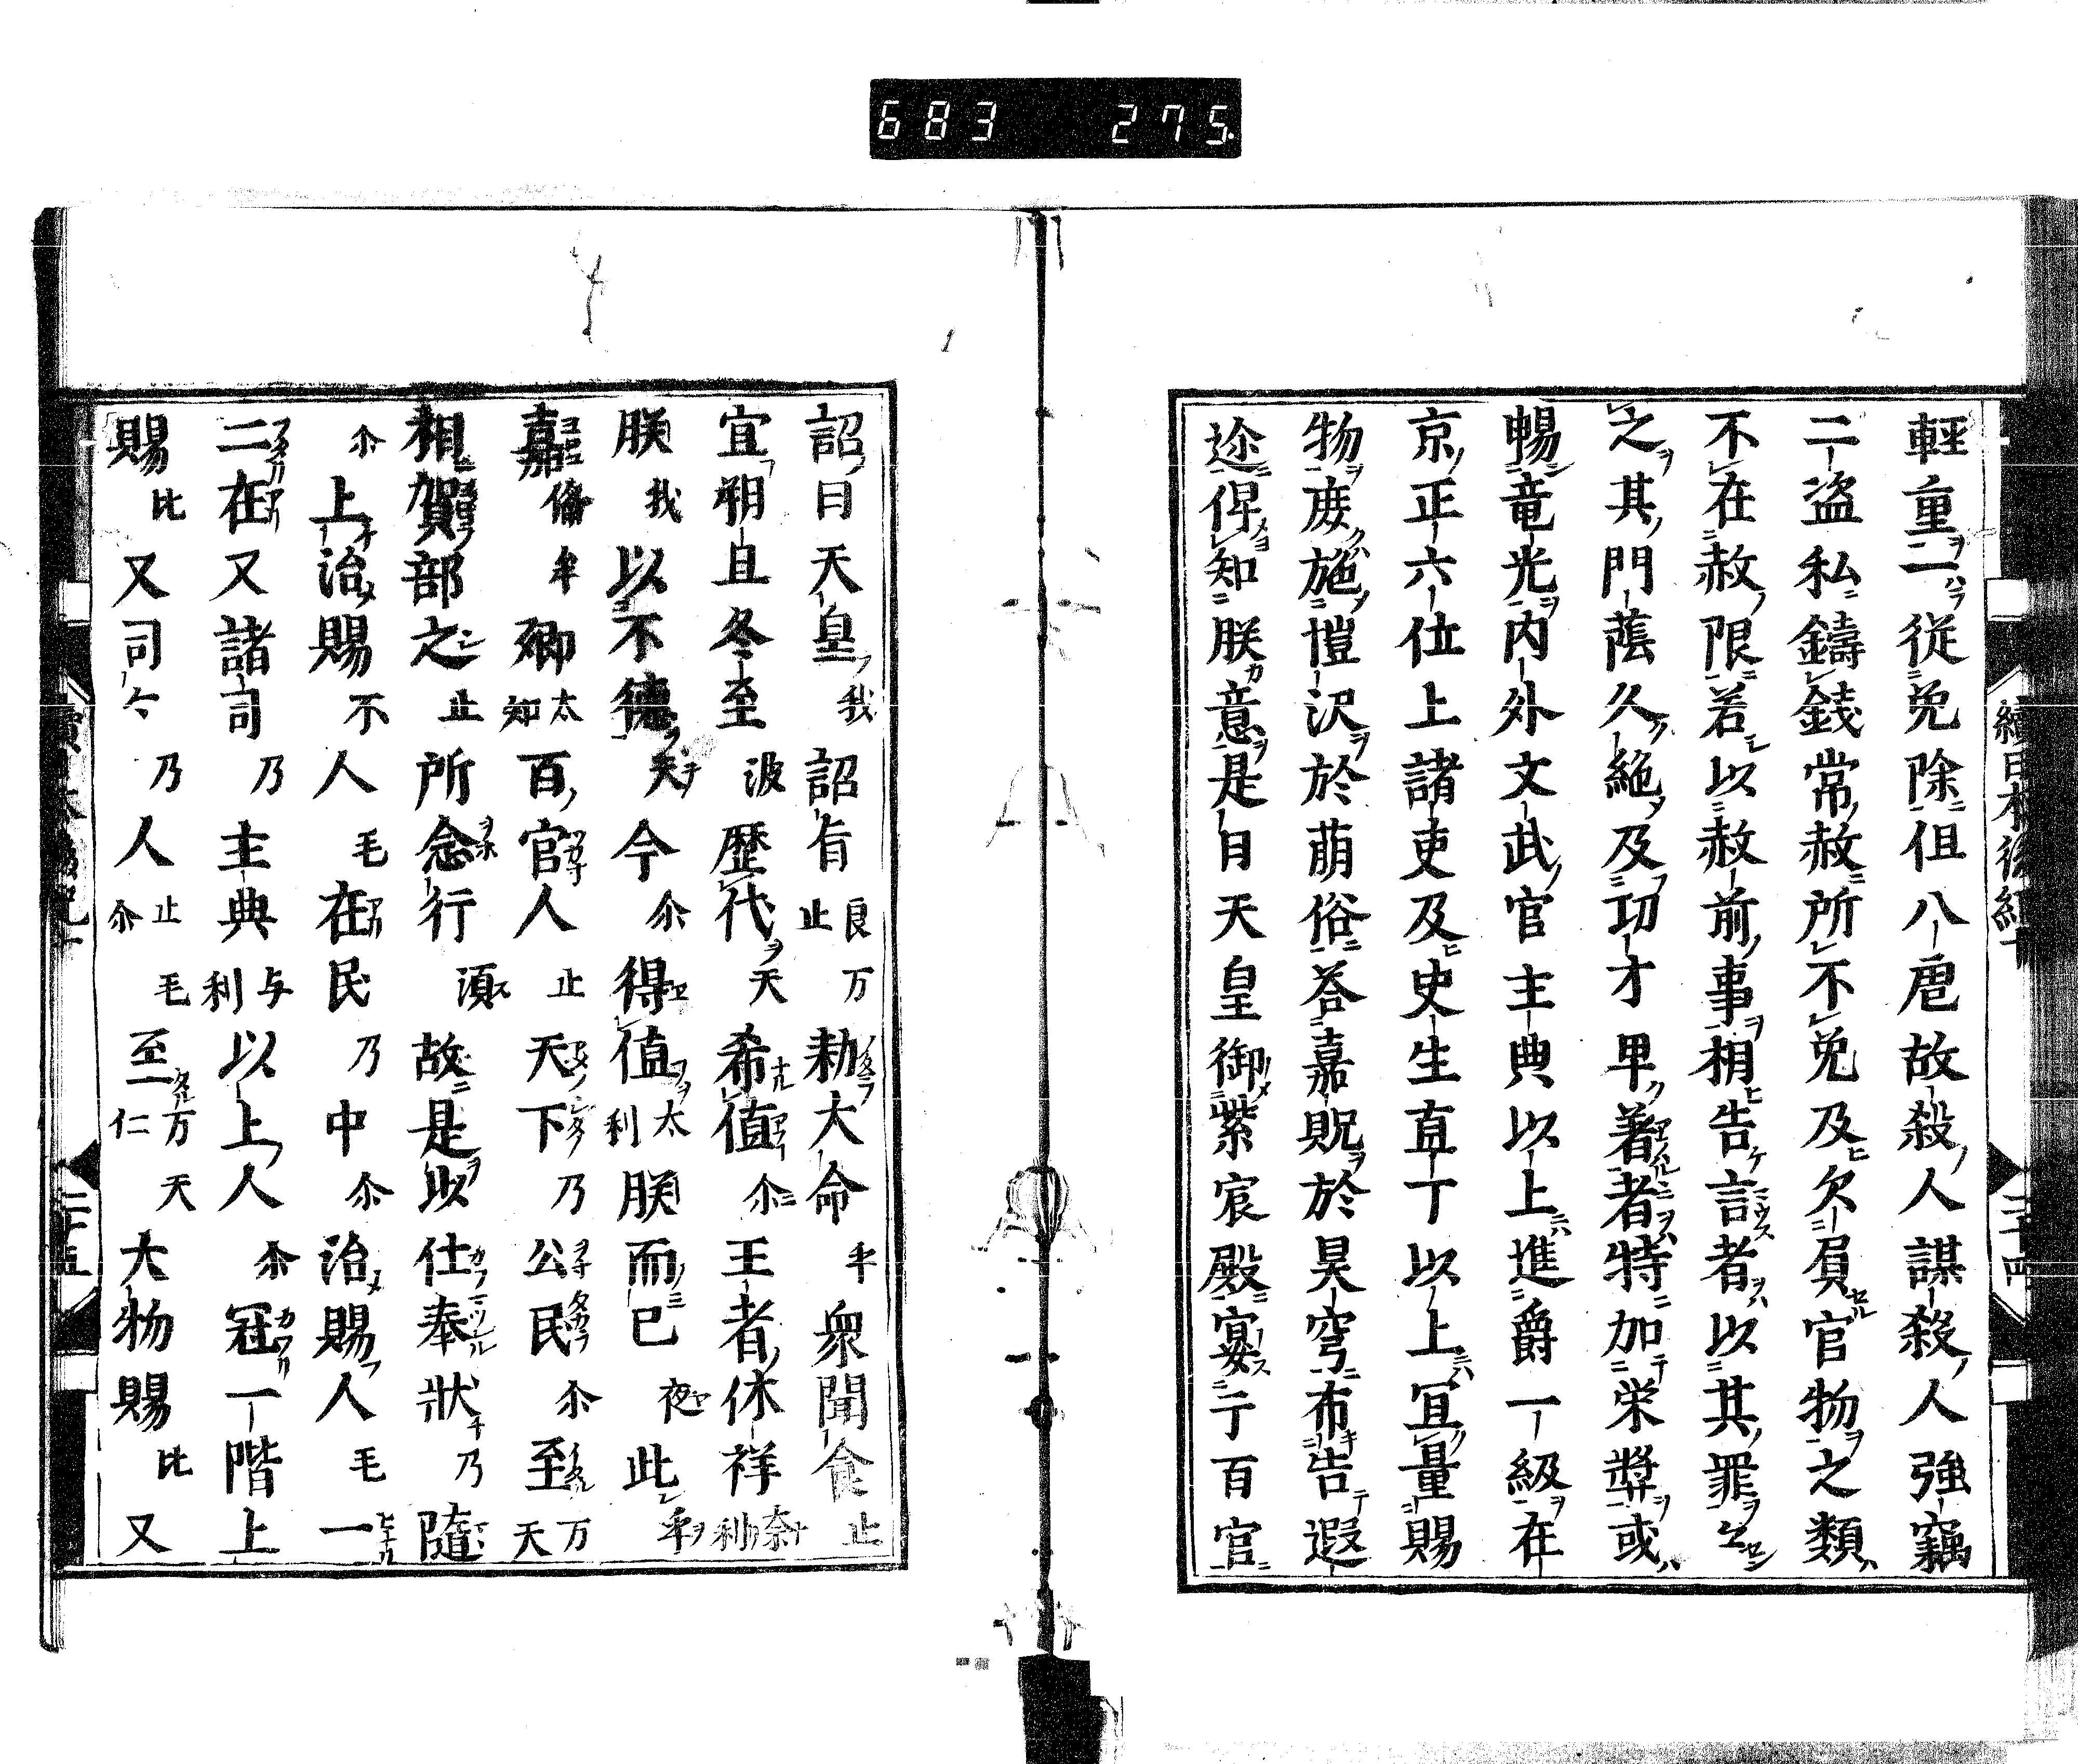 683 275
輕重二從免除但八虐故殺人謀殺人強竊
二盗私鑄錢常赦所不免及欠負官物之類
不在赦限若以赦前事相告言者以其罪
之其門蔭久絶及功才卑著者特加栄奬或
暢竜光内外文武官主典以上進爵一級在
京正六位上諸吏及史生直丁以上冝量賜
物庻施愷沢於萠俗荅嘉貺於昊穹布告遐
迩俾知朕意是日天皇御紫宸殿宴于百官
詔曰天皇我詔旨良万止勅大命乎衆聞食止
宜朔旦冬至波歴代天希値尒王者休祥奈利
朕我以不德天今尒得値太利朕而已夜此乎
嘉備牟卿太知百官人止天下乃公民尒至万天
相賀部之止所念行須故是以仕奉狀乃隨
尒上治賜不人毛在民乃中尒治賜人毛一
二在又諸司乃主典与利以上人尒冠一階上
賜比又司々乃人止尒毛至万仁天大物賜比又